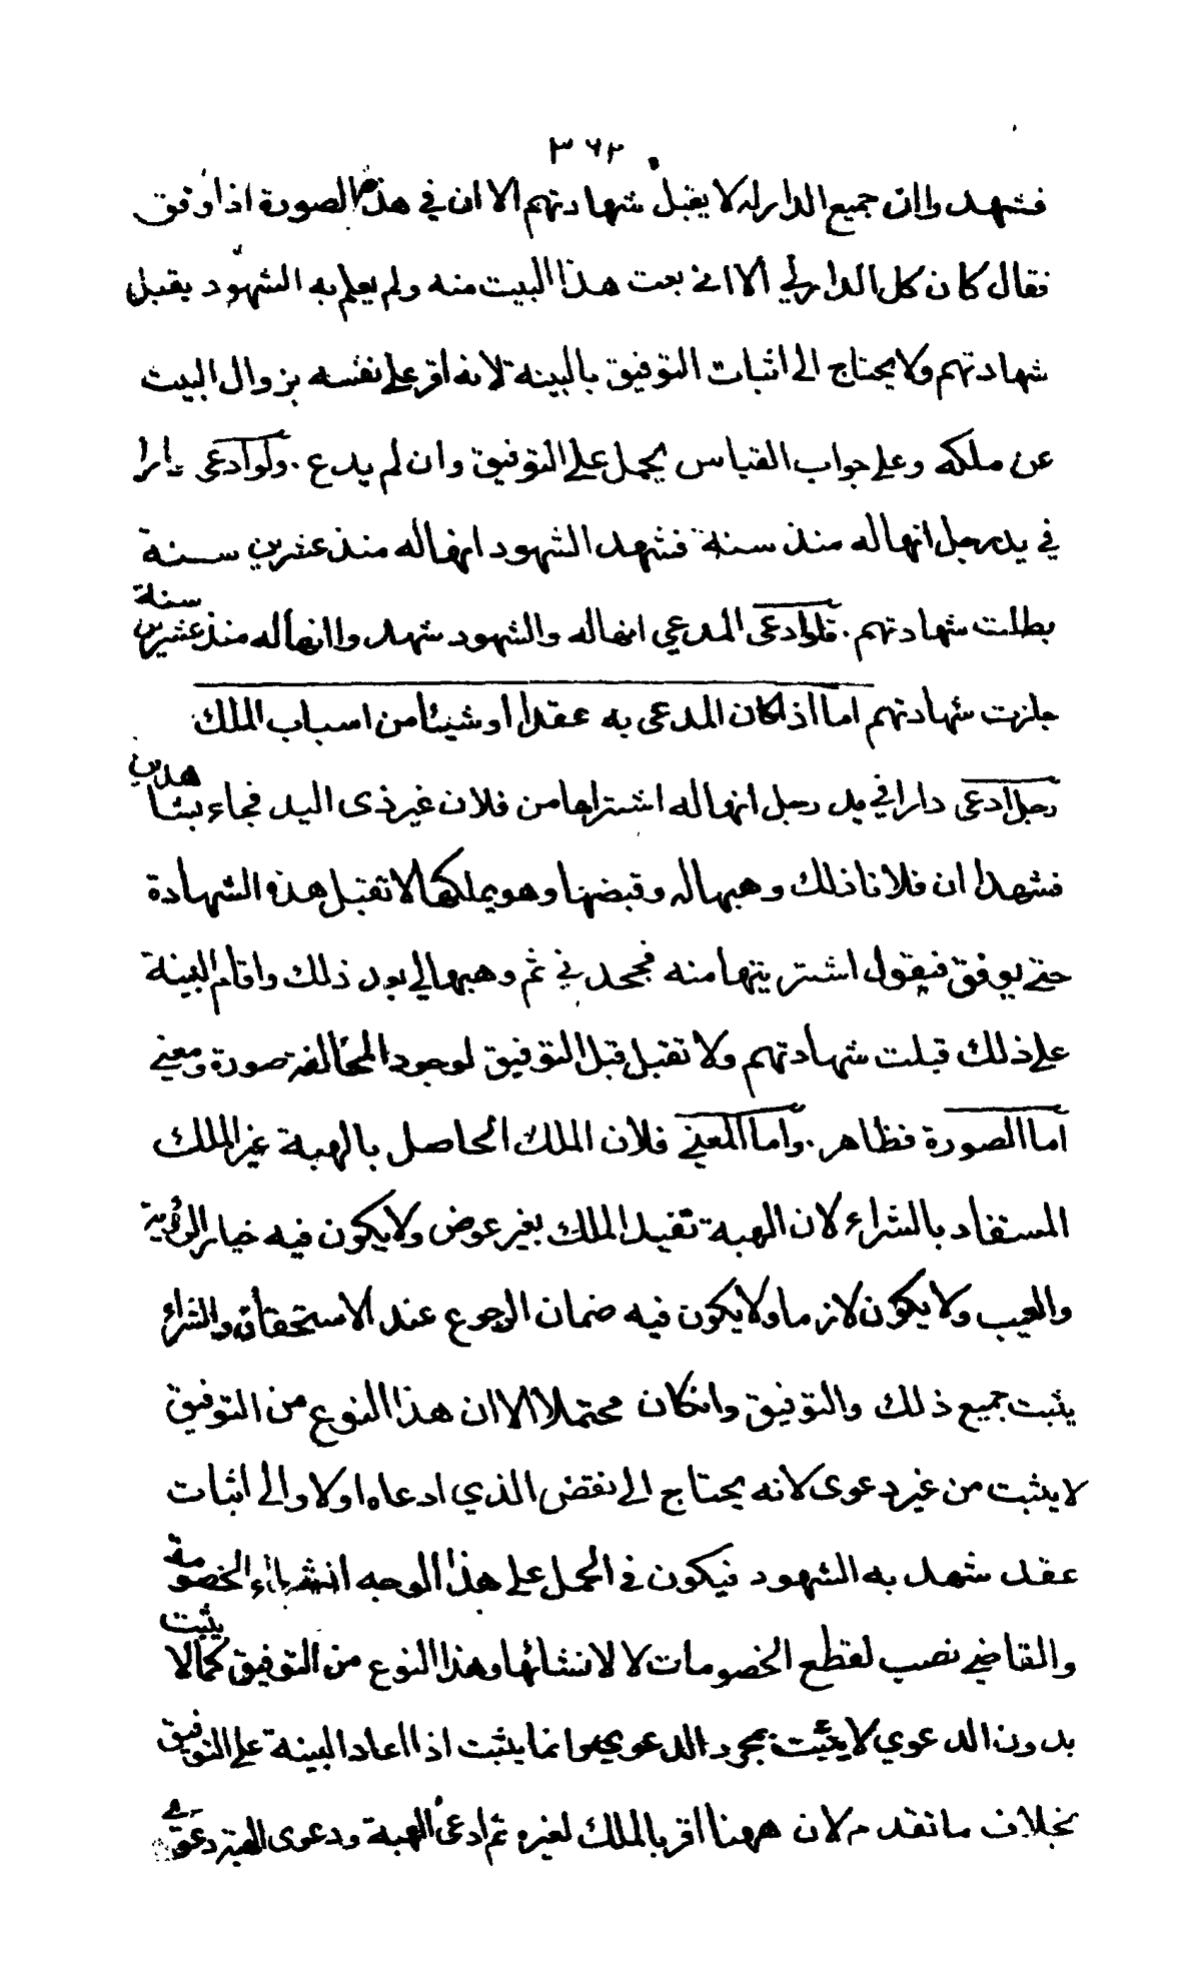 ٣٦٢
فشهدوا ان جميع الدار له لا يقبل شهادتهم الا ان في هذه الصورة اذا وفق
فقال كان كل الدار لي الا اني بعت هذا البيت منه ولم يعلم به الشهود يقبل
شهادتهم ولا يحتاج الى اثبات التوفيق بالبينة لانه اقر على نفسه بزوال البيت
عن ملكه وعلى جواب القياس يحمل على التوفيق وان لم يدع . ولو ادعى دارا
في يد رجل انها له منذ سنة فشهد الشهود انها له منذ عشرين سنة
بطلت شهادتهم . فلو ادعى المدعي انها له والشهود شهدوا انها له منذ عشرين سنة
جازت شهادتهم اما اذا كان المدعى به عقدا او شيئا من اسباب الملك
رجل ادعى دارا في يد رجل انها له اشتراها من فلان غير ذى اليد فجاء بشاهدين
فشهدا ان فلانا ذلك وهبها له وقبضها وهو يملكها لا تقبل هذه الشهادة
حتى يوفق فيقول اشتريتها منه فجحدني ثم وهبها لي بعد ذلك واقام البينة
على ذلك قبلت شهادتهم ولا تقبل قبل التوفيق لوجود المخالفة صورة ومعنى
اما الصورة فظاهر . واما المعنى فلان الملك الحاصل بالهبة غير الملك
المستفاد بالشراء لان الهبة تفيد الملك بغير عوض ولا يكون فيه خيار الرؤية
والعيب ولا يكون لازما ولا يكون فيه ضمان الرجوع عند الاستحقاق والشراء
يثبت جميع ذلك والتوفيق وان كان محتملا الا ان هذا النوع من التوفيق
لا يثبت من غير دعوى لانه يحتاج الى نقض الذي ادعاه اولا والى اثبات
عقد شهد به الشهود فيكون في الحمل على هذا الوجه انشاء الخصومة
والقاضي نصب لقطع الخصومات لا لانشائها وهذا النوع من التوفيق كما لا يثبت
بدون الدعوي لا يثبت بمجرد الدعوي وانما يثبت اذا اعاد البينة على التوفيق
بخلاف ما تقدم لان ههنا اقر بالملك لغيره ثم ادعى الهبة ودعوى الهبة دعوى